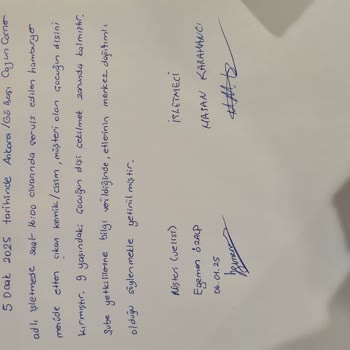 5 Ocak 2025 tarihinde Ankara/Gölbaşı Cajun Corner
adlı işletmede saat 16:00 civarında servis edilen hamburger
menüde etten çıkan kemik/cisim, müşteri olan çocuğun dişini
kırmıştır. 9 yaşındaki çocuğun dişi çekilmek zorunda kalmıştır.
Şube yetkililerine bilgi verildiğinde, etlerinin merkez dağıtımlı
olduğu söylenmekle yetinilmiştir.
Müşteri (velisi)
Egemen Özalp
06.01.25
İŞLETMECİ
HASAN KARAHANCI